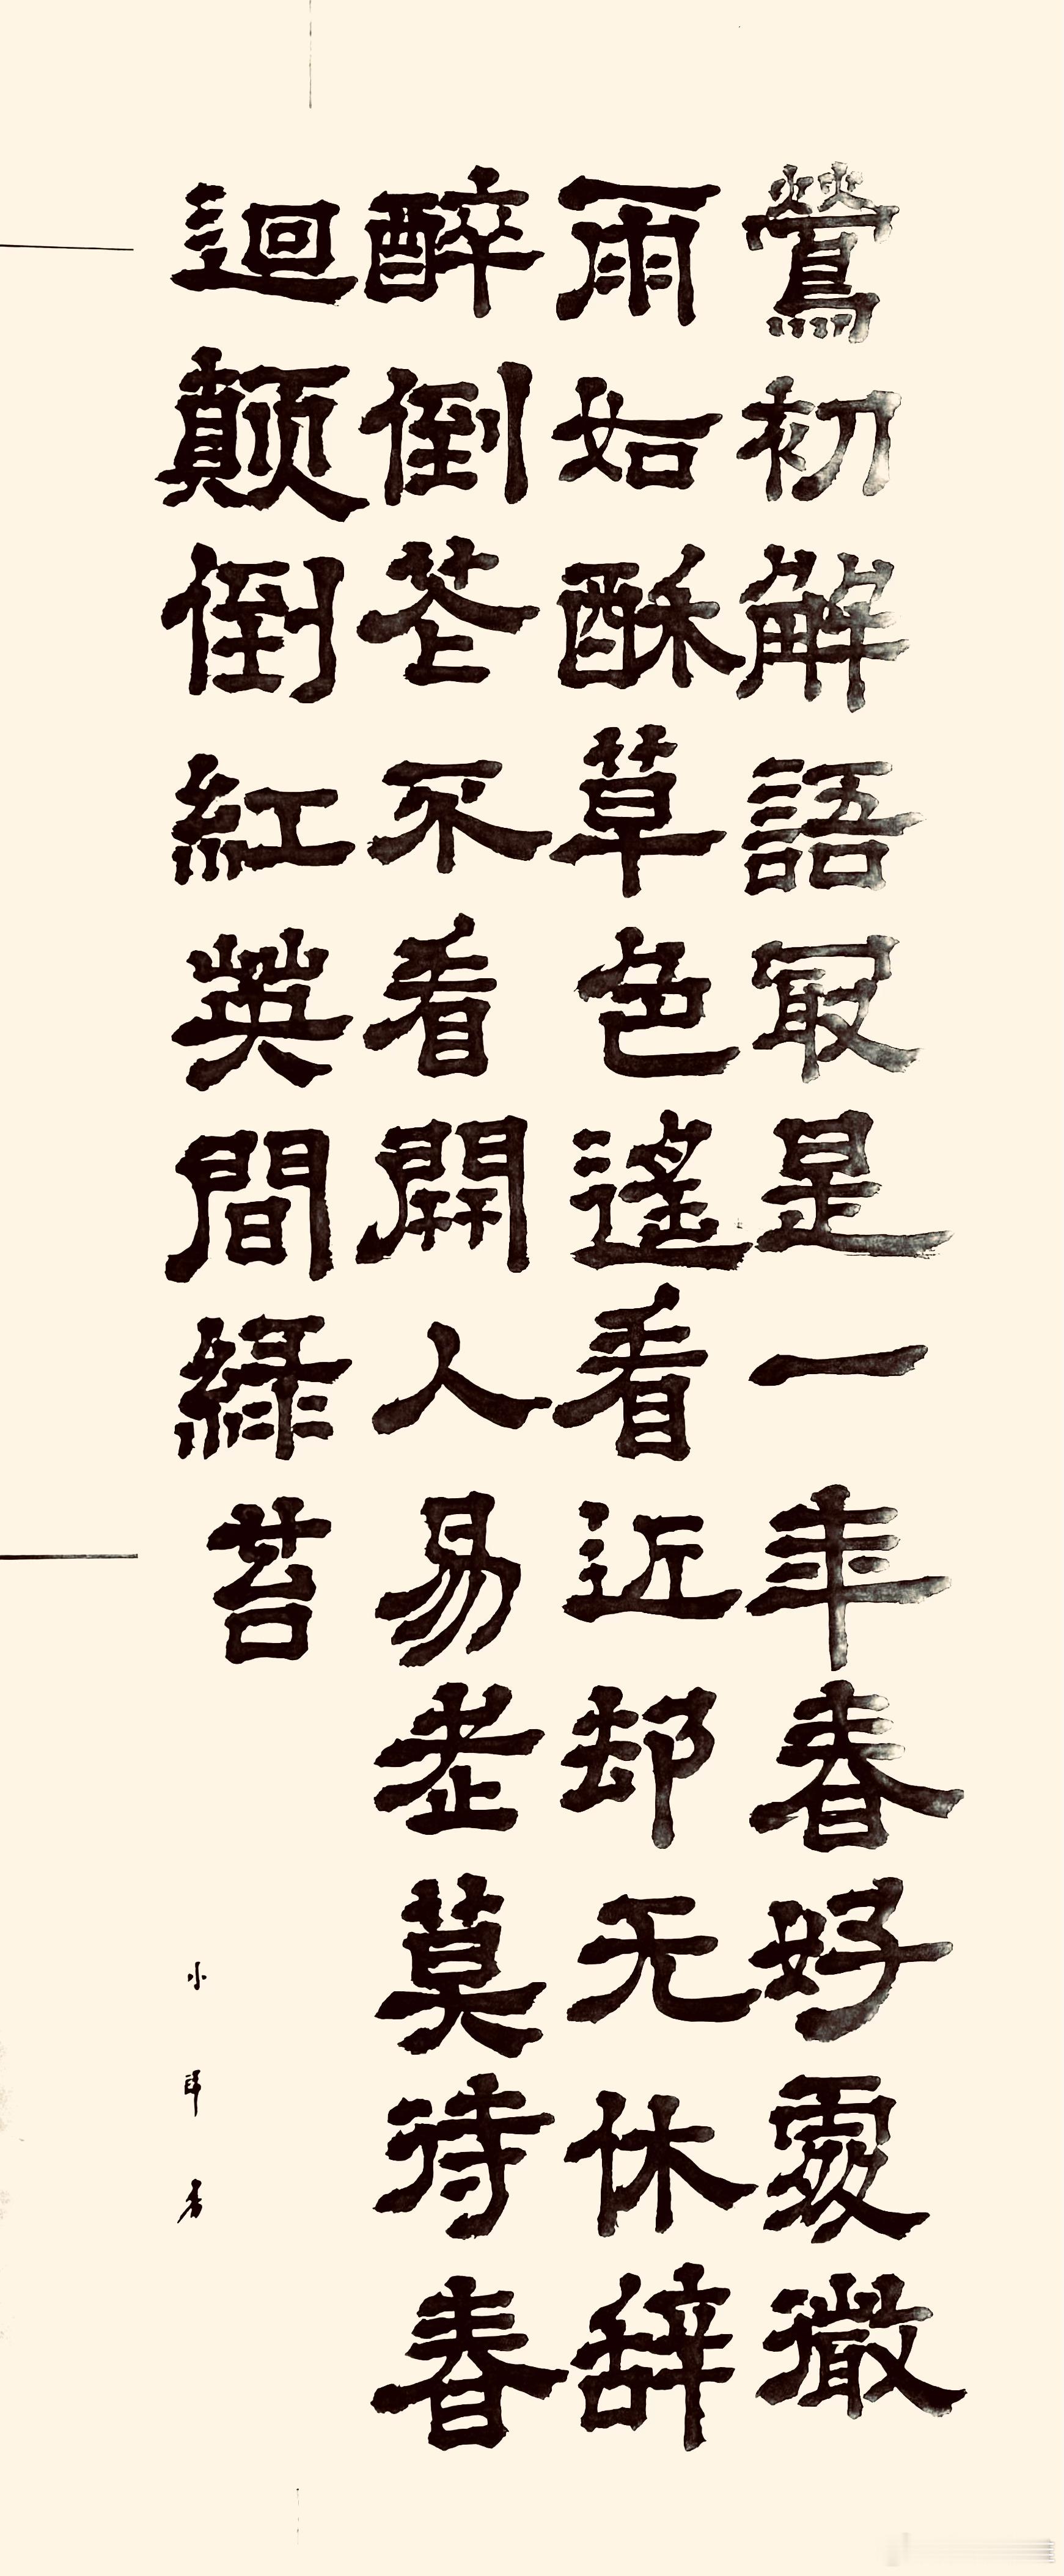 鶯初解語冣是一年春好處微
雨如酥草色遙看近却无休辭
醉倒花不看開人易老莫待春
迴顛倒紅英間綠苔
小